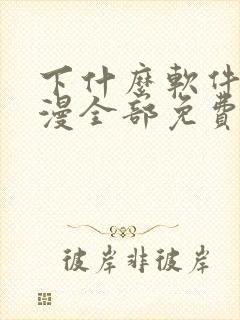 下什麼軟件
漫全部免費
彼岸非彼岸